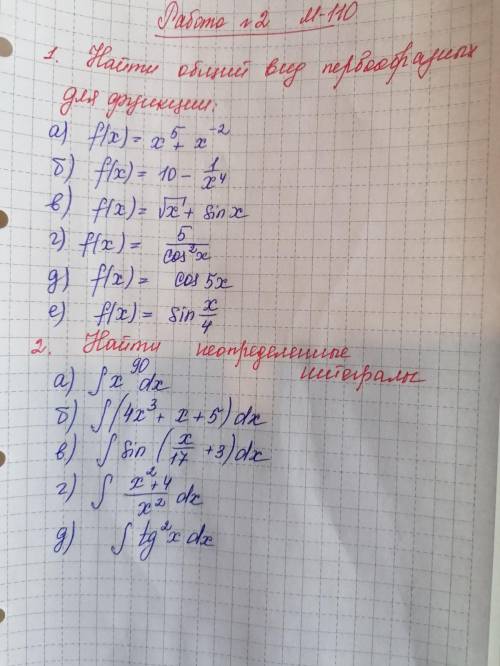 Работа №2 М-110
1. Найти общий вид первообразных
для функции:
а) f(x) = x⁵ + x⁻²
б) f(x) = 10 - 1/x⁴
в) f(x) = √x + sin x
г) f(x) = 5/cos²x
д) f(x) = cos 5x
е) f(x) = sin x/4
2. Найти неопределенные
интегралы
а) ∫ x⁹⁰ dx
б) ∫ (4x³ + x + 5) dx
в) ∫ sin (x/17 + 3) dx
г) ∫ (x² + 4)/x² dx
д) ∫ tg²x dx